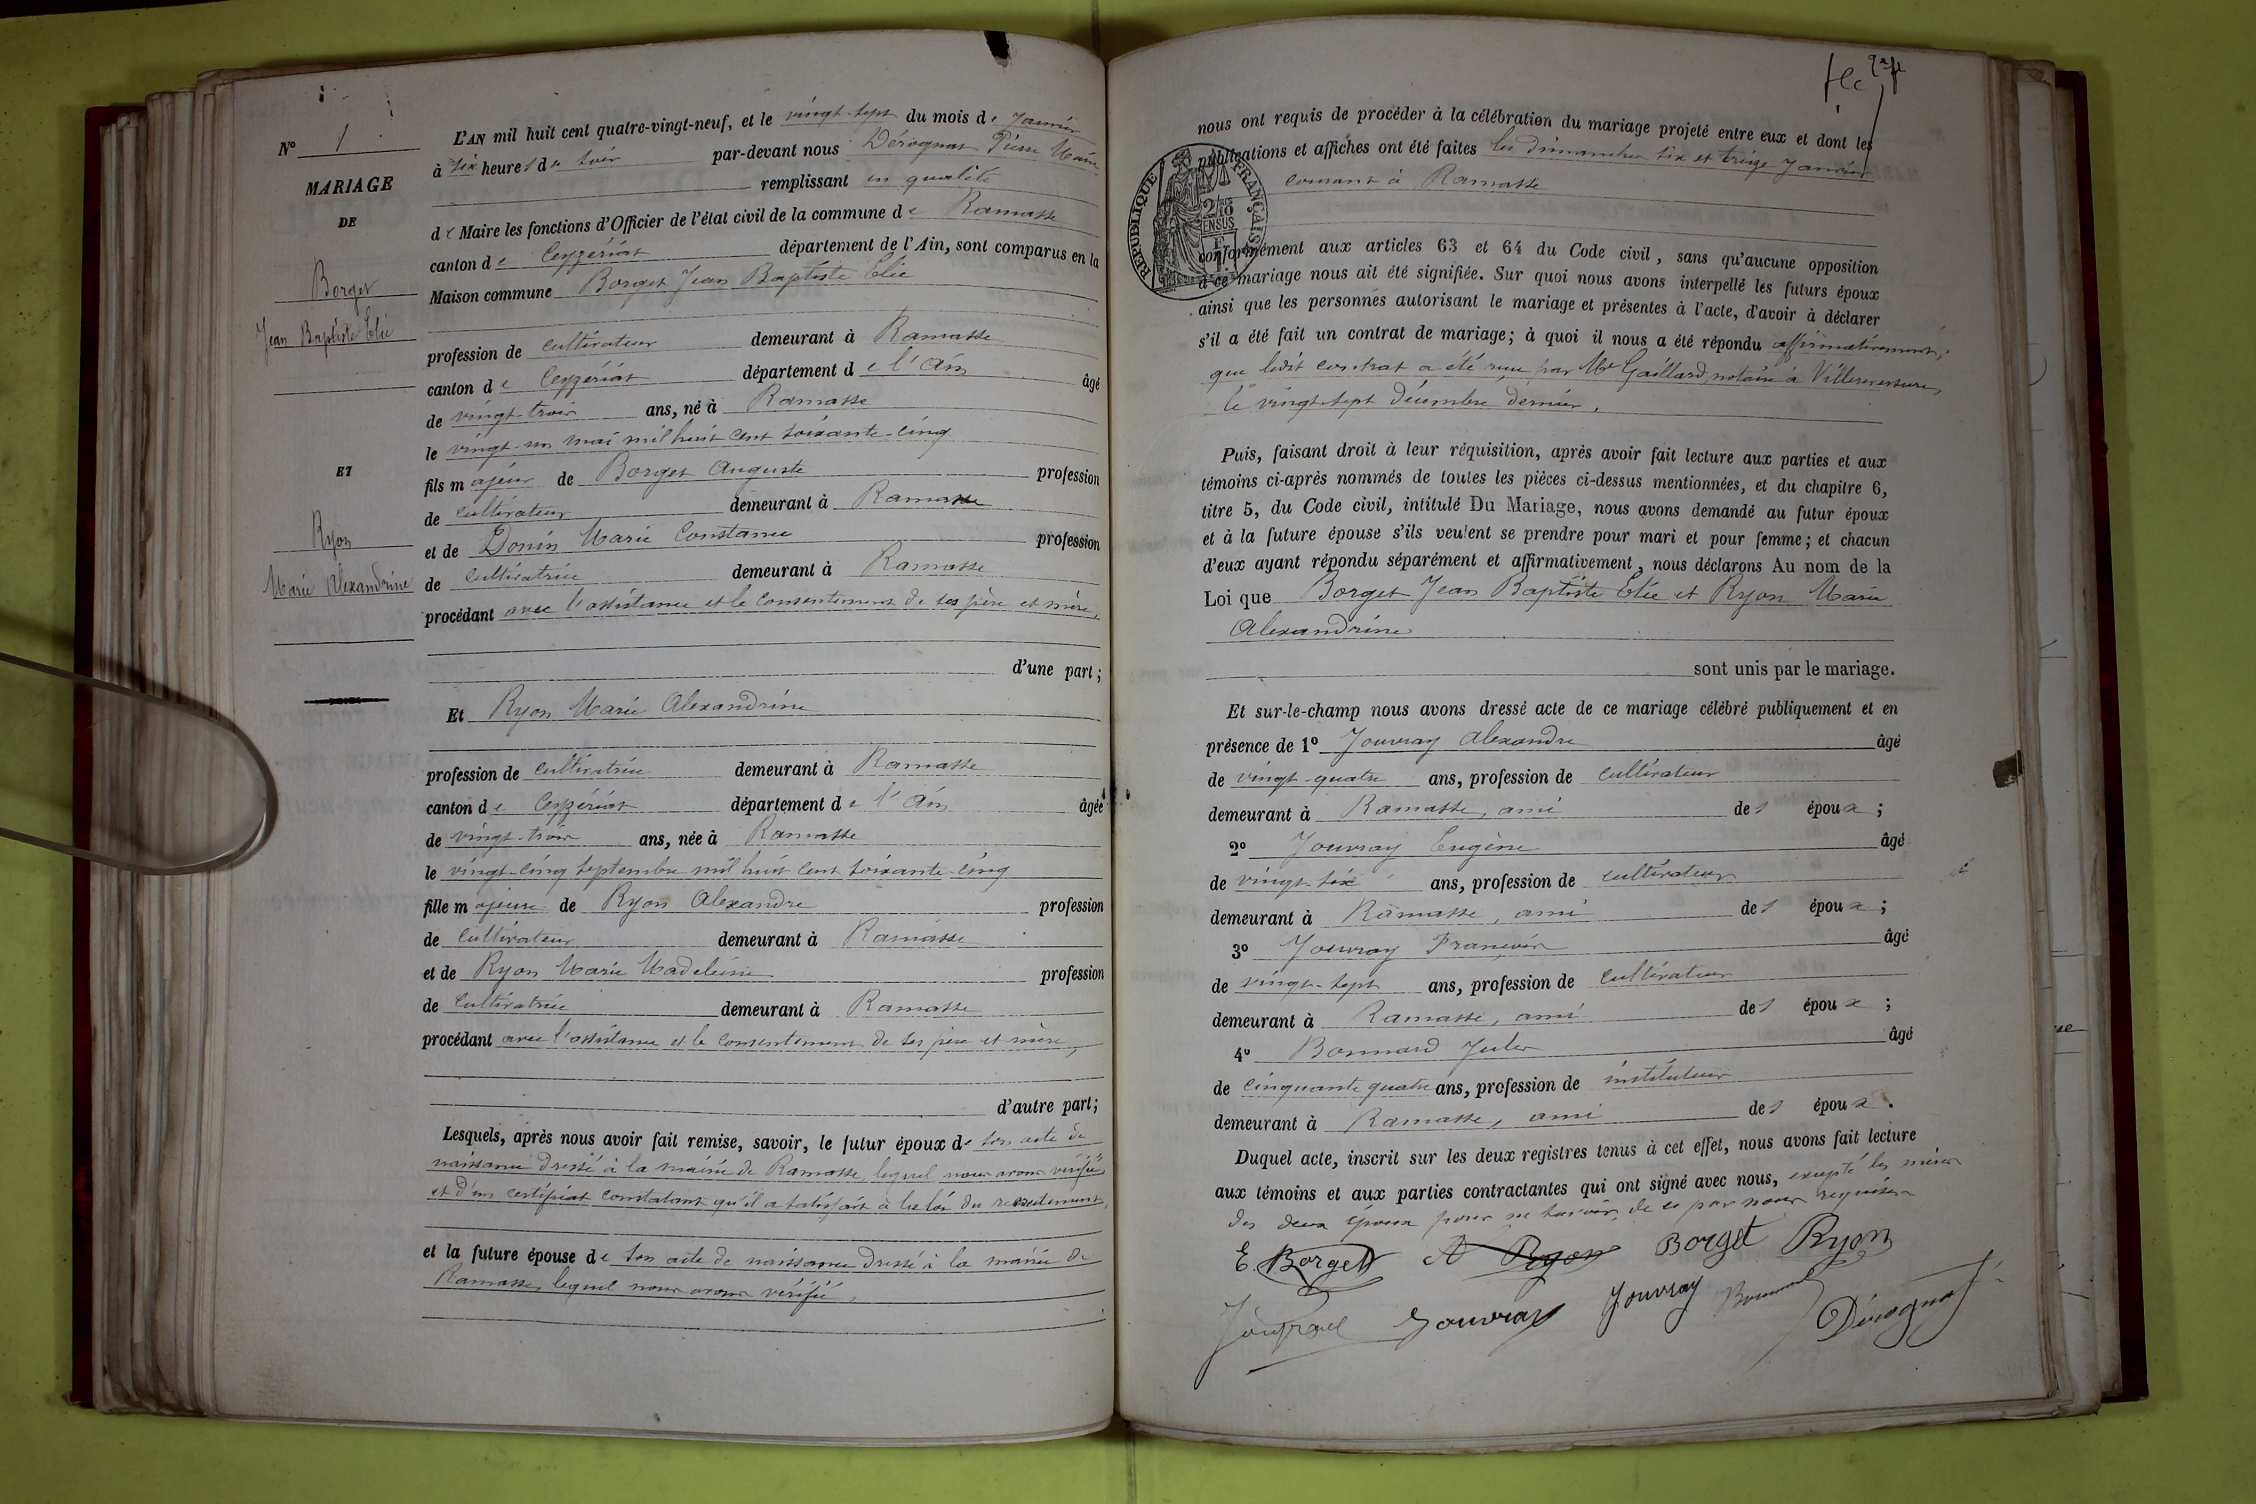 N° 1
MARIAGE
DE
Borget
Jean Baptiste Elie
ET
Ryon
Marie Alexandrine
L'AN mil huit cent quatre-vingt-neuf, et le vingt-sept du mois de Janvier
à six heures du soir par-devant nous Dérognat Pierre Marie
remplissant en qualité
de Maire les fonctions d'Officier de l'état civil de la commune de Ramasse
canton de Ceyzériat département de l'Ain, sont comparus en la
Maison commune Borget Jean Baptiste Elie
profession de cultivateur demeurant à Ramasse
canton de Ceyzériat département de l'Ain âgé
de vingt-trois ans, né à Ramasse
le vingt-un mai mil huit cent soixante-cinq
fils majeur de Borget Auguste profession
de cultivateur demeurant à Ramasse
et de Donin Marie Constance profession
de cultivatrice demeurant à Ramasse
procédant avec l'assistance et le consentement de ses père et mère,
d'une part;
Et Ryon Marie Alexandrine
profession de cultivatrice demeurant à Ramasse
canton de Ceyzériat département de l'Ain âgée
de vingt-trois ans, née à Ramasse
le vingt-cinq septembre mil huit cent soixante-cinq
fille majeure de Ryon Alexandre profession
de cultivateur demeurant à Ramasse
et de Ryon Marie Madeleine profession
de cultivatrice demeurant à Ramasse
procédant avec l'assistance et le consentement de ses père et mère,
d'autre part;
Lesquels, après nous avoir fait remise, savoir, le futur époux de son acte de
naissance dressé à la mairie de Ramasse lequel nous avons vérifié,
et d'un certificat constatant qu'il a satisfait à la loi du recrutement,
et la future épouse de son acte de naissance dressé à la mairie de
Ramasse, lequel nous avons vérifié,
nous ont requis de procéder à la célébration du mariage projeté entre eux et dont les
publications et affiches ont été faites les dimanches six et treize Janvier
courant à Ramasse
RÉPUBLIQUE FRANÇAISE
2/10 EN SUS
conformément aux articles 63 et 64 du Code civil, sans qu'aucune opposition
à ce mariage nous ait été signifiée. Sur quoi nous avons interpellé les futurs époux
ainsi que les personnes autorisant le mariage et présentes à l'acte, d'avoir à déclarer
s'il a été fait un contrat de mariage; à quoi il nous a été répondu affirmativement;
que ledit contrat a été reçu par Me Gaillard, notaire à Villereversure,
le vingt-sept Décembre dernier.
Puis, faisant droit à leur réquisition, après avoir fait lecture aux parties et aux
témoins ci-après nommés de toutes les pièces ci-dessus mentionnées, et du chapitre 6,
titre 5, du Code civil, intitulé Du Mariage, nous avons demandé au futur époux
et à la future épouse s'ils veulent se prendre pour mari et pour femme; et chacun
d'eux ayant répondu séparément et affirmativement, nous déclarons Au nom de la
Loi que Borget Jean Baptiste Elie et Ryon Marie
Alexandrine
sont unis par le mariage.
Et sur-le-champ nous avons dressé acte de ce mariage célébré publiquement et en
présence de 1° Jouvray Alexandre âgé
de vingt-quatre ans, profession de cultivateur
demeurant à Ramasse, ami des époux;
2° Jouvray Eugène âgé
de vingt-six ans, profession de cultivateur
demeurant à Ramasse, ami des époux;
3° Jouvray François âgé
de vingt-sept ans, profession de cultivateur
demeurant à Ramasse, ami des époux;
4° Bonnard Jules âgé
de cinquante quatre ans, profession de instituteur
demeurant à Ramasse, ami des époux.
Duquel acte, inscrit sur les deux registres tenus à cet effet, nous avons fait lecture
aux témoins et aux parties contractantes qui ont signé avec nous, excepté les mères
des deux époux pour ne savoir, de ce par nous requises
E. Borget A Ryon Borget Ryon
Jouvray Jouvray Bonnard Dérognat